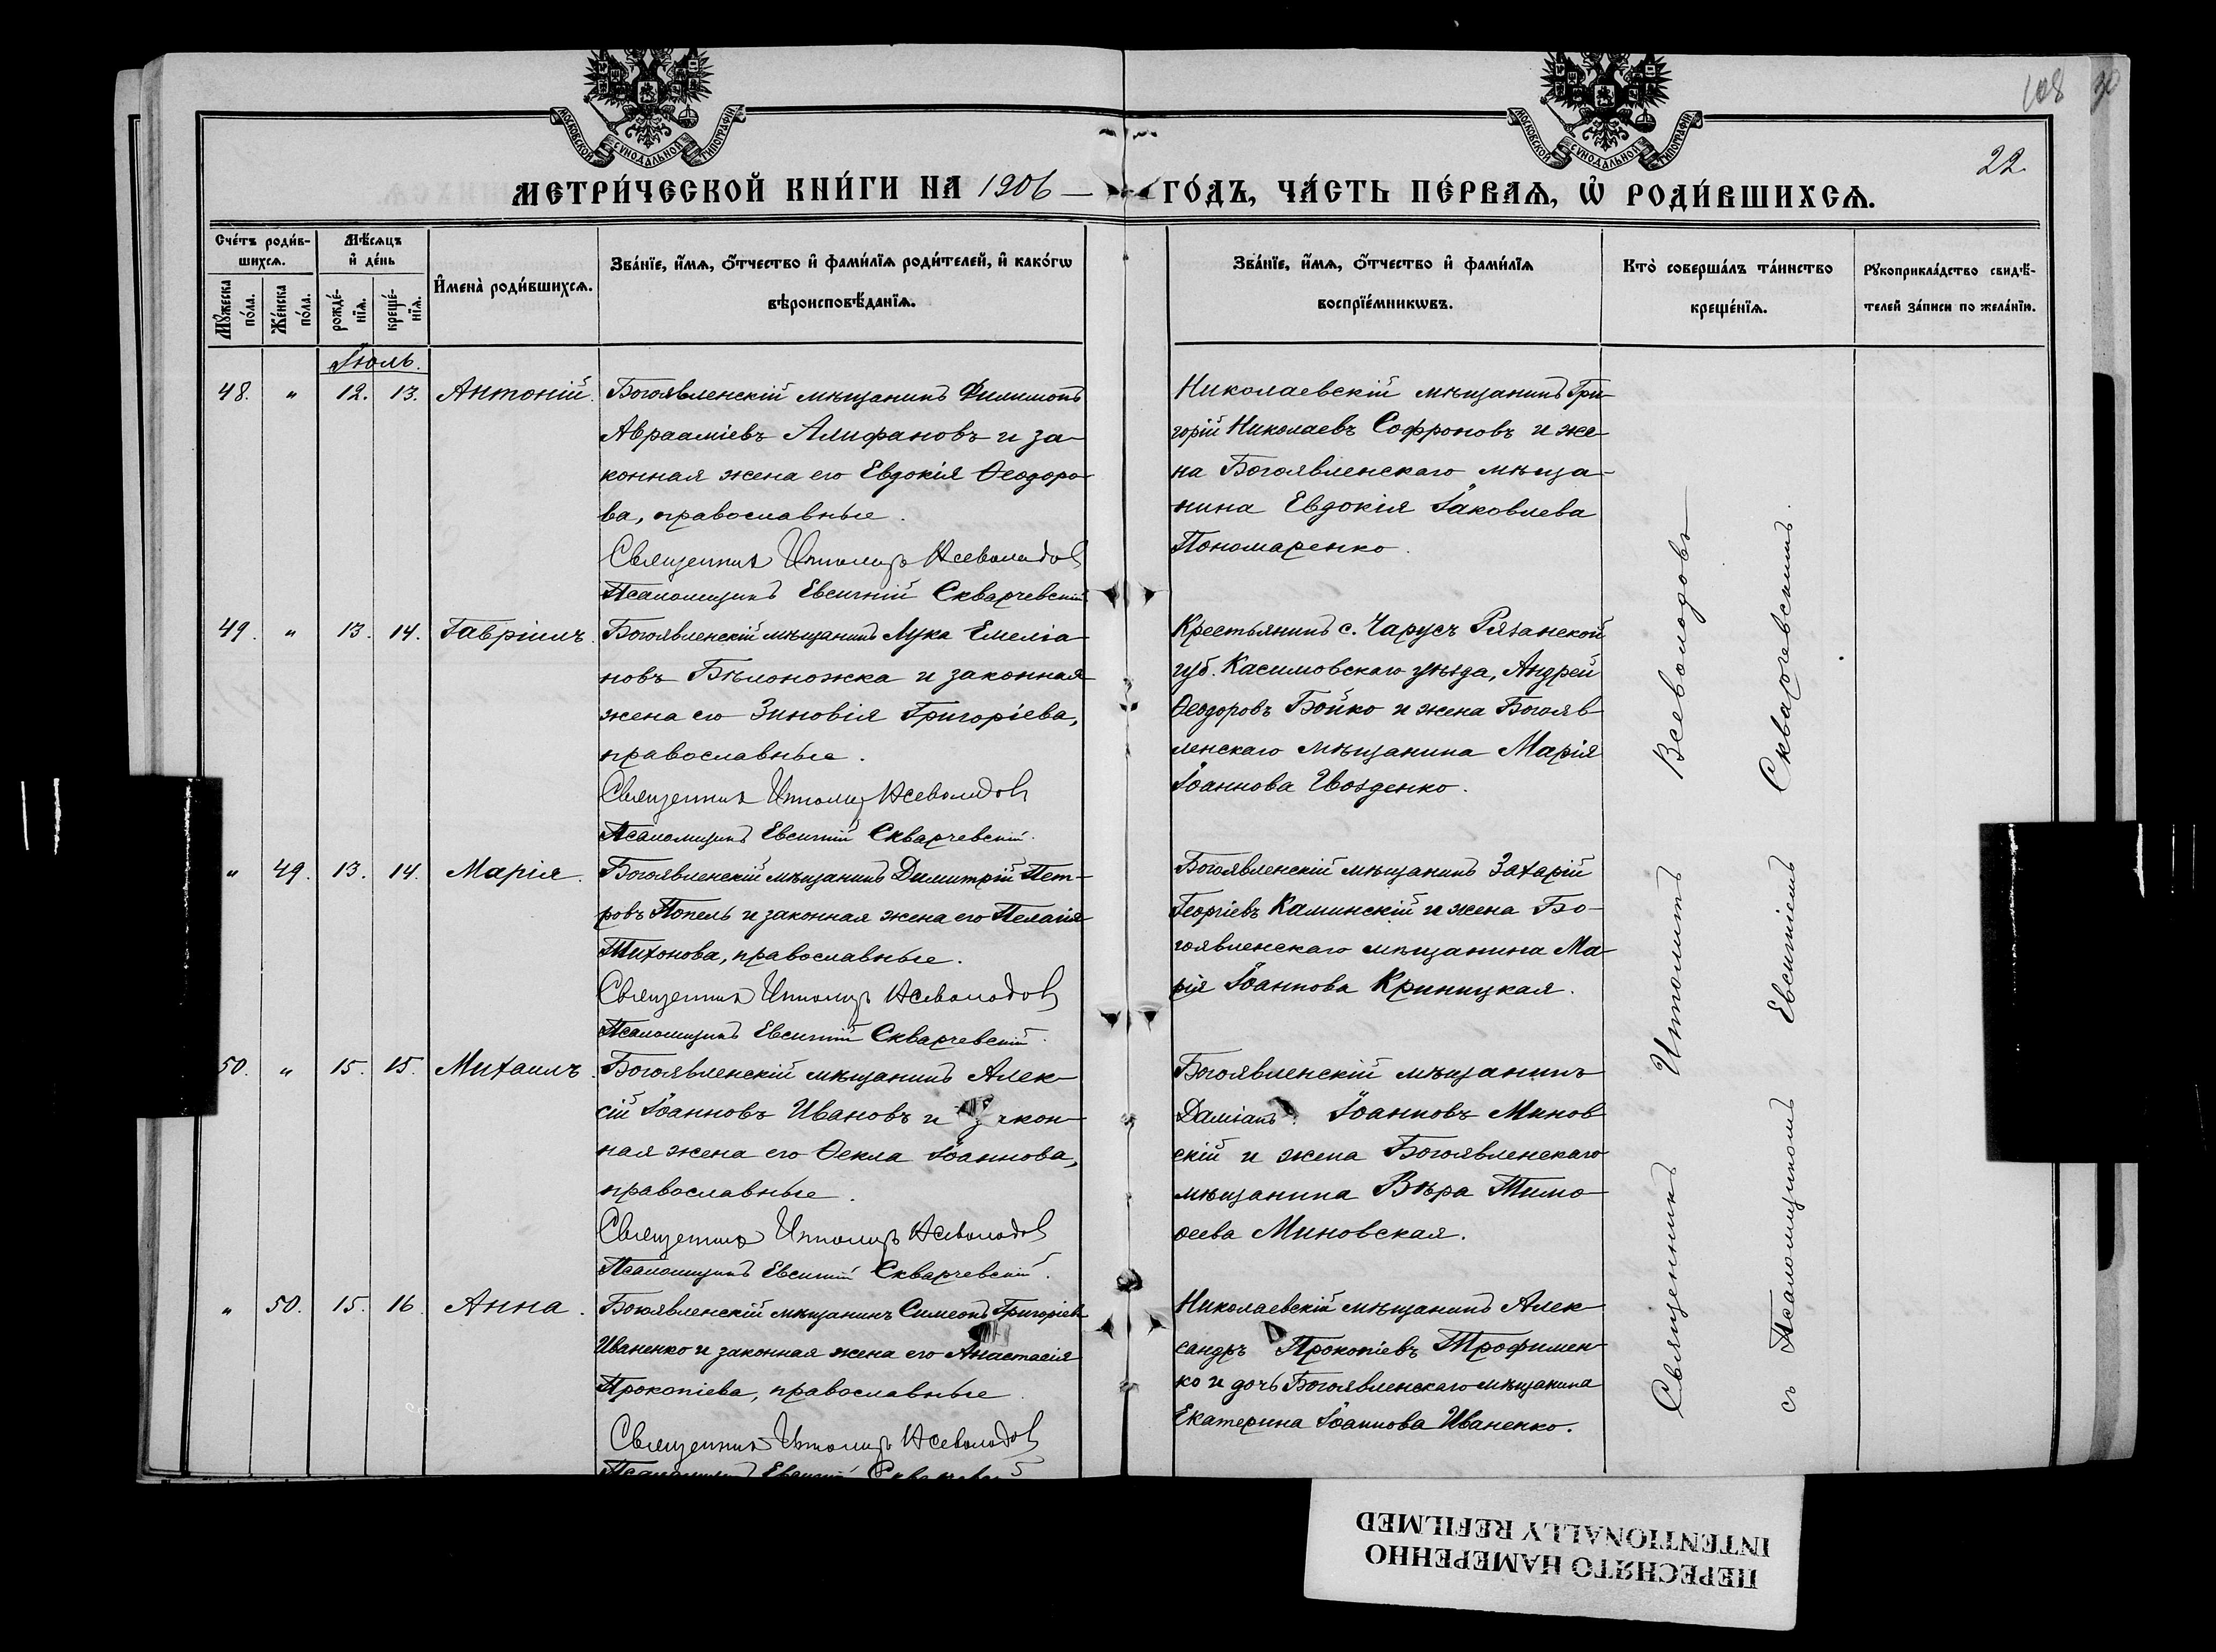 108 30
22.
МОСКОВСКОЙ СѴНОДАЛЬНОЙ ТИПОГРАФІИ
МОСКОВСКОЙ СѴНОДАЛЬНОЙ ТИПОГРАФІИ
МЕТРИ́ЧЕСКОЙ КНИ́ГИ НА 1906 — ГО́ДЪ, ЧА́СТЬ ПЕ́РВАѦ, Ѿ РОДИ́ВШИХСѦ.
Сче́тъ роди́в-
шихсѧ.
Мꙋ́жеска по́ла.
Же́нска по́ла.
Мѣ́сѧцъ
и҆ де́нь
рожде́-
нїѧ.
креще́-
нїѧ.
И҆мена̀ роди́вшихсѧ.
Зва́нїе, и҆́мѧ, ѻ҆́тчество и҆ фами́лїѧ роди́телей, и҆ како́гѡ
вѣроисповѣ́данїѧ.
Зва́нїе, и҆́мѧ, ѻ҆́тчество и҆ фами́лїѧ
воспрїе́мникѡвъ.
Кто̀ соверша́лъ та́инство
креще́нїѧ.
Рꙋкоприкла́дство свидѣ́-
телей за́писи по жела́нїю.
Іюль.
48. " 12. 13. Антоній.
Богоявленскій мѣщанинъ Филимонъ
Авраамiевъ Алифановъ и за-
конная жена его Евдокія Ѳеодоро-
ва, православные.
Священникъ Ипполитъ Всеволодовъ
Псаломщикъ Евсигній Скварчевскій
Николаевскій мѣщанинъ Гри-
горій Николаевъ Софроновъ и же-
на Богоявленскаго мѣща-
нина Евдокія Іаковлева
Пономаренко.
49. " 13. 14. Гавріилъ.
Богоявленскій мѣщанинъ Лука Емеліа-
новъ Бѣлоножка и законная
жена его Зиновія Григоріева,
православные.
Священникъ Ипполитъ Всеволодовъ
Псаломщикъ Евсигній Скварчевскій.
Крестьянинъ с. Чарусъ Рязанской
губ. Касимовскаго уѣзда, Андрей
Ѳеодоровъ Бойко и жена Богояв-
ленскаго мѣщанина Марія
Іоаннова Гвозденко.
" 49. 13. 14. Марія.
Богоявленскій мѣщанинъ Димитрій Пет-
ровъ Попель и законная жена его Пелагія
Тихонова, православные.
Священникъ Ипполитъ Всеволодовъ
Псаломщикъ Евсигній Скварчевскій.
Богоявленскій мѣщанинъ Захарій
Георгіевъ Каминскій и жена Бо-
гоявленскаго мѣщанина Ма-
рія Іоаннова Криницкая.
50. " 15. 15. Михаилъ.
Богоявленскій мѣщанинъ Алек-
сій Іоанновъ Ивановъ и закон-
ная жена его Ѳекла Іоаннова,
православные.
Священникъ Ипполитъ Всеволодовъ
Псаломщикъ Евсигній Скварчевскій.
Богоявленскій мѣщанинъ
Даміанъ Іоанновъ Минов-
скій и жена Богоявленскаго
мѣщанина Вѣра Тимо-
ѳеева Миновская.
" 50. 15. 16. Анна.
Богоявленскій мѣщанинъ Симеонъ Григоріевъ
Иваненко и законная жена его Анастасія
Прокопіева, православные.
Священникъ Ипполитъ Всеволодовъ
Псаломщикъ Евсигній Скварчевскій
Николаевскій мѣщанинъ Алек-
сандръ Прокопіевъ Трофимен-
ко и дочь Богоявленскаго мѣщанина
Екатерина Іоаннова Иваненко.
Священникъ Ипполитъ Всеволодовъ
съ Псаломщикомъ Евсигніемъ Скварчевскимъ.
ПЕРЕСНЯТО НАМЕРЕННО
INTENTIONALLY REFILMED